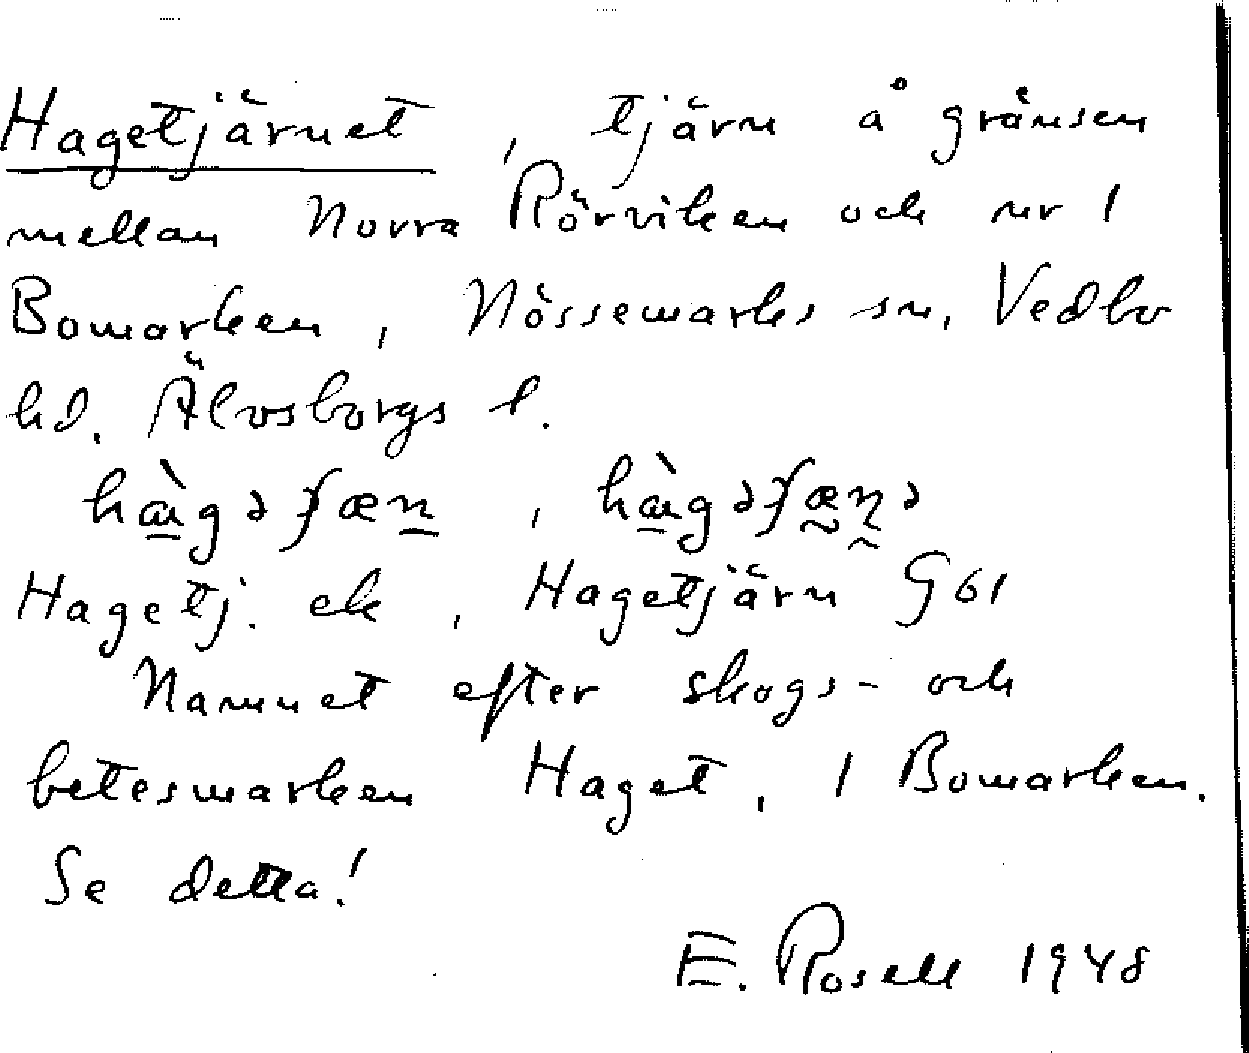 Hagetjärnet, tjärn å gränsen
mellan Norra Rörviken och nr 1
Bomarken, Nössemarks sn, Vedbo
hd. Älvsborgs l.
Hagetj. ek, Hagetjärn G61
Namnet efter skogs- och
betesmarken Haget, 1 Bomarken.
Se detta!
E. Rosell 1948